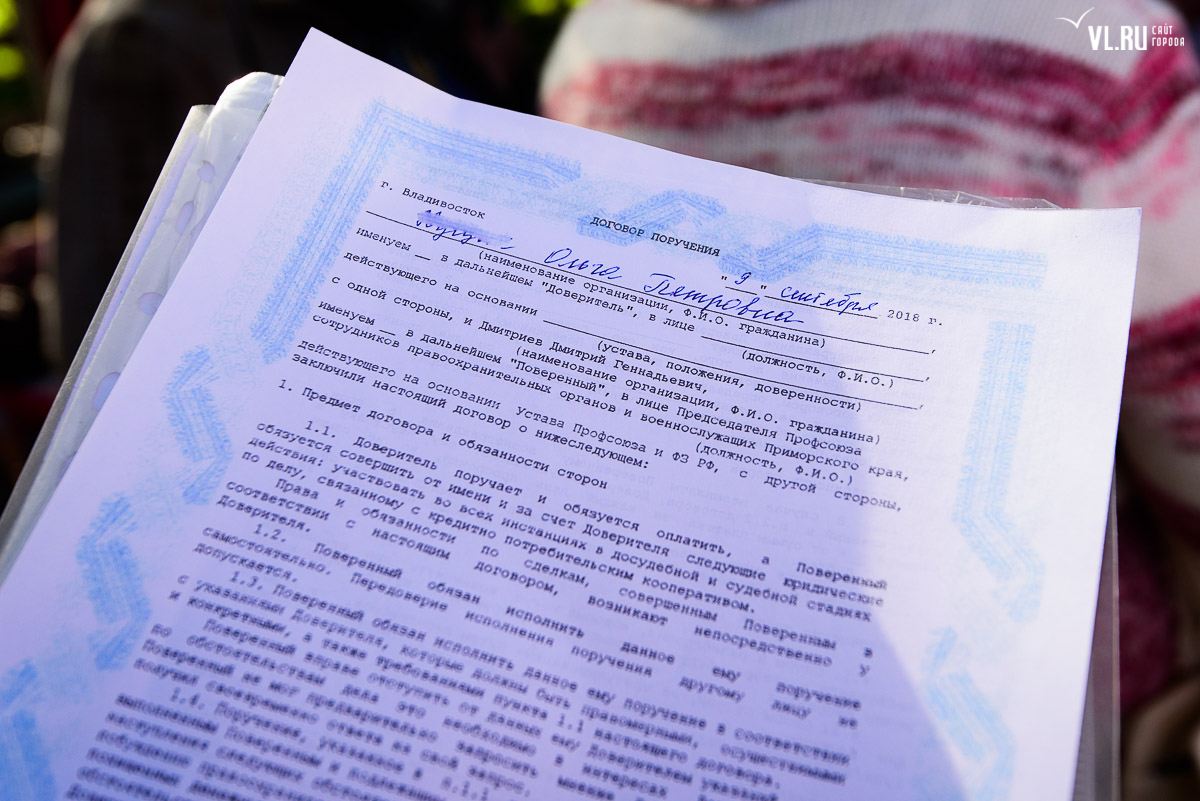 VL.RU САЙТ ГОРОДА
г. Владивосток
ДОГОВОР ПОРУЧЕНИЯ
"9" сентября 2018 г.
Ольга Петровна
(наименование организации, Ф.И.О. гражданина)
именуем__ в дальнейшем "Доверитель", в лице
(должность, Ф.И.О.)
действующего на основании
(устава, положения, доверенности)
с одной стороны, и Дмитриев Дмитрий Геннадьевич,
(наименование организации, Ф.И.О. гражданина)
именуем__ в дальнейшем "Поверенный", в лице Председателя Профсоюза
сотрудников правоохранительных органов и военнослужащих Приморского края,
(должность, Ф.И.О.)
действующего на основании Устава Профсоюза и ФЗ РФ, с другой стороны,
заключили настоящий договор о нижеследующем:
1. Предмет договора и обязанности сторон
1.1. Доверитель поручает и обязуется оплатить, а Поверенный
обязуется совершить от имени и за счет Доверителя следующие юридические
действия: участвовать во всех инстанциях в досудебной и судебной стадиях
по делу, связанному с кредитно потребительским кооперативом.
Права и обязанности по сделкам, совершенным Поверенным в
соответствии с настоящим договором, возникают непосредственно у
Доверителя.
1.2. Поверенный обязан исполнить данное ему поручение
самостоятельно. Передоверие исполнения поручения другому лицу не
допускается.
1.3. Поверенный обязан исполнить данное ему поручение в соответствии
с указаниями Доверителя, которые должны быть правомерными, осуществимыми
и конкретными, а также требованиями пункта 1.1 настоящего договора.
Поверенный вправе отступить от данных ему Доверителем указаний
по обстоятельствам дела это необходимо в интересах
Поверенный не мог предварительно запросить
получил своевременно ответа на свой запрос.
1.4. Поручения, указанное в п.1.1